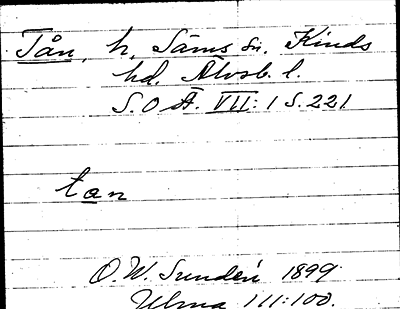 Tån, h, Säms sn. Kinds
hd. Älvsb. l.
S.O.Ä. VII: 1 S. 221
tan
O. W. Sundén 1899
Ulma 111:100.